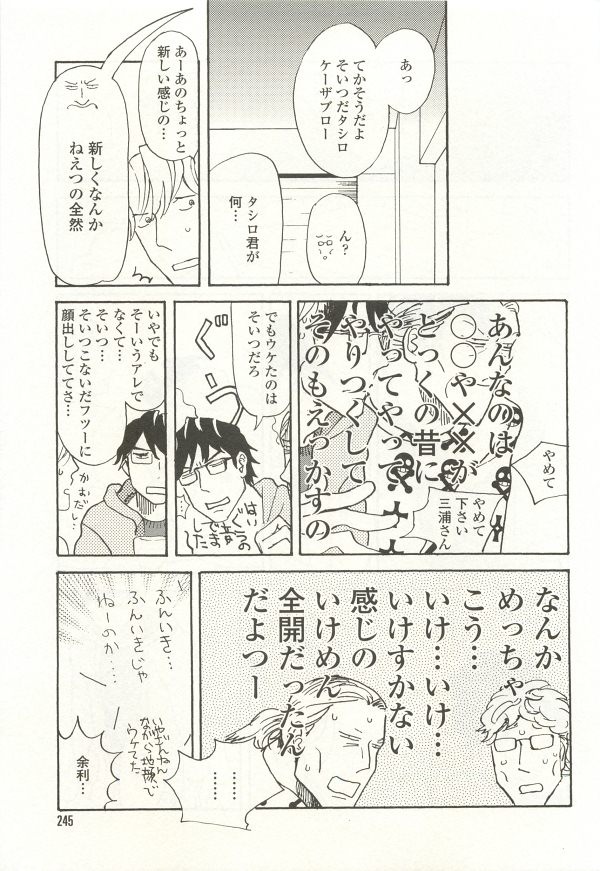 あっ
てかそうだよ
そいつだタシロ
ケーザブロー
ん?
タシロ君が
何…
あーあのちょっと
新しい感じの…
新しくなんか
ねえつの全然
あんなのは
○○や××が
とっくの昔に
やってやって
やりつくして
そのもえっかすの
やめて
やめて
下さい
三浦さん
でもウケたのは
そいつだろ
ぐうっ
はい
ぐうの
音でした
いやでも
そーいうアレで
なくて…
そいつ…
そいつこないだフツーに
顔出ししててさ…
かおだし…
なんか
めっちゃ
こう…
いけ…いけ…
いけすかない
感じの
いけめん
全開だったん
だよつー
………
………
ふんいき…
ふんいきじゃ
ねーのか…
いやざんねん
ながら地様で
ウケてた
余利…
245